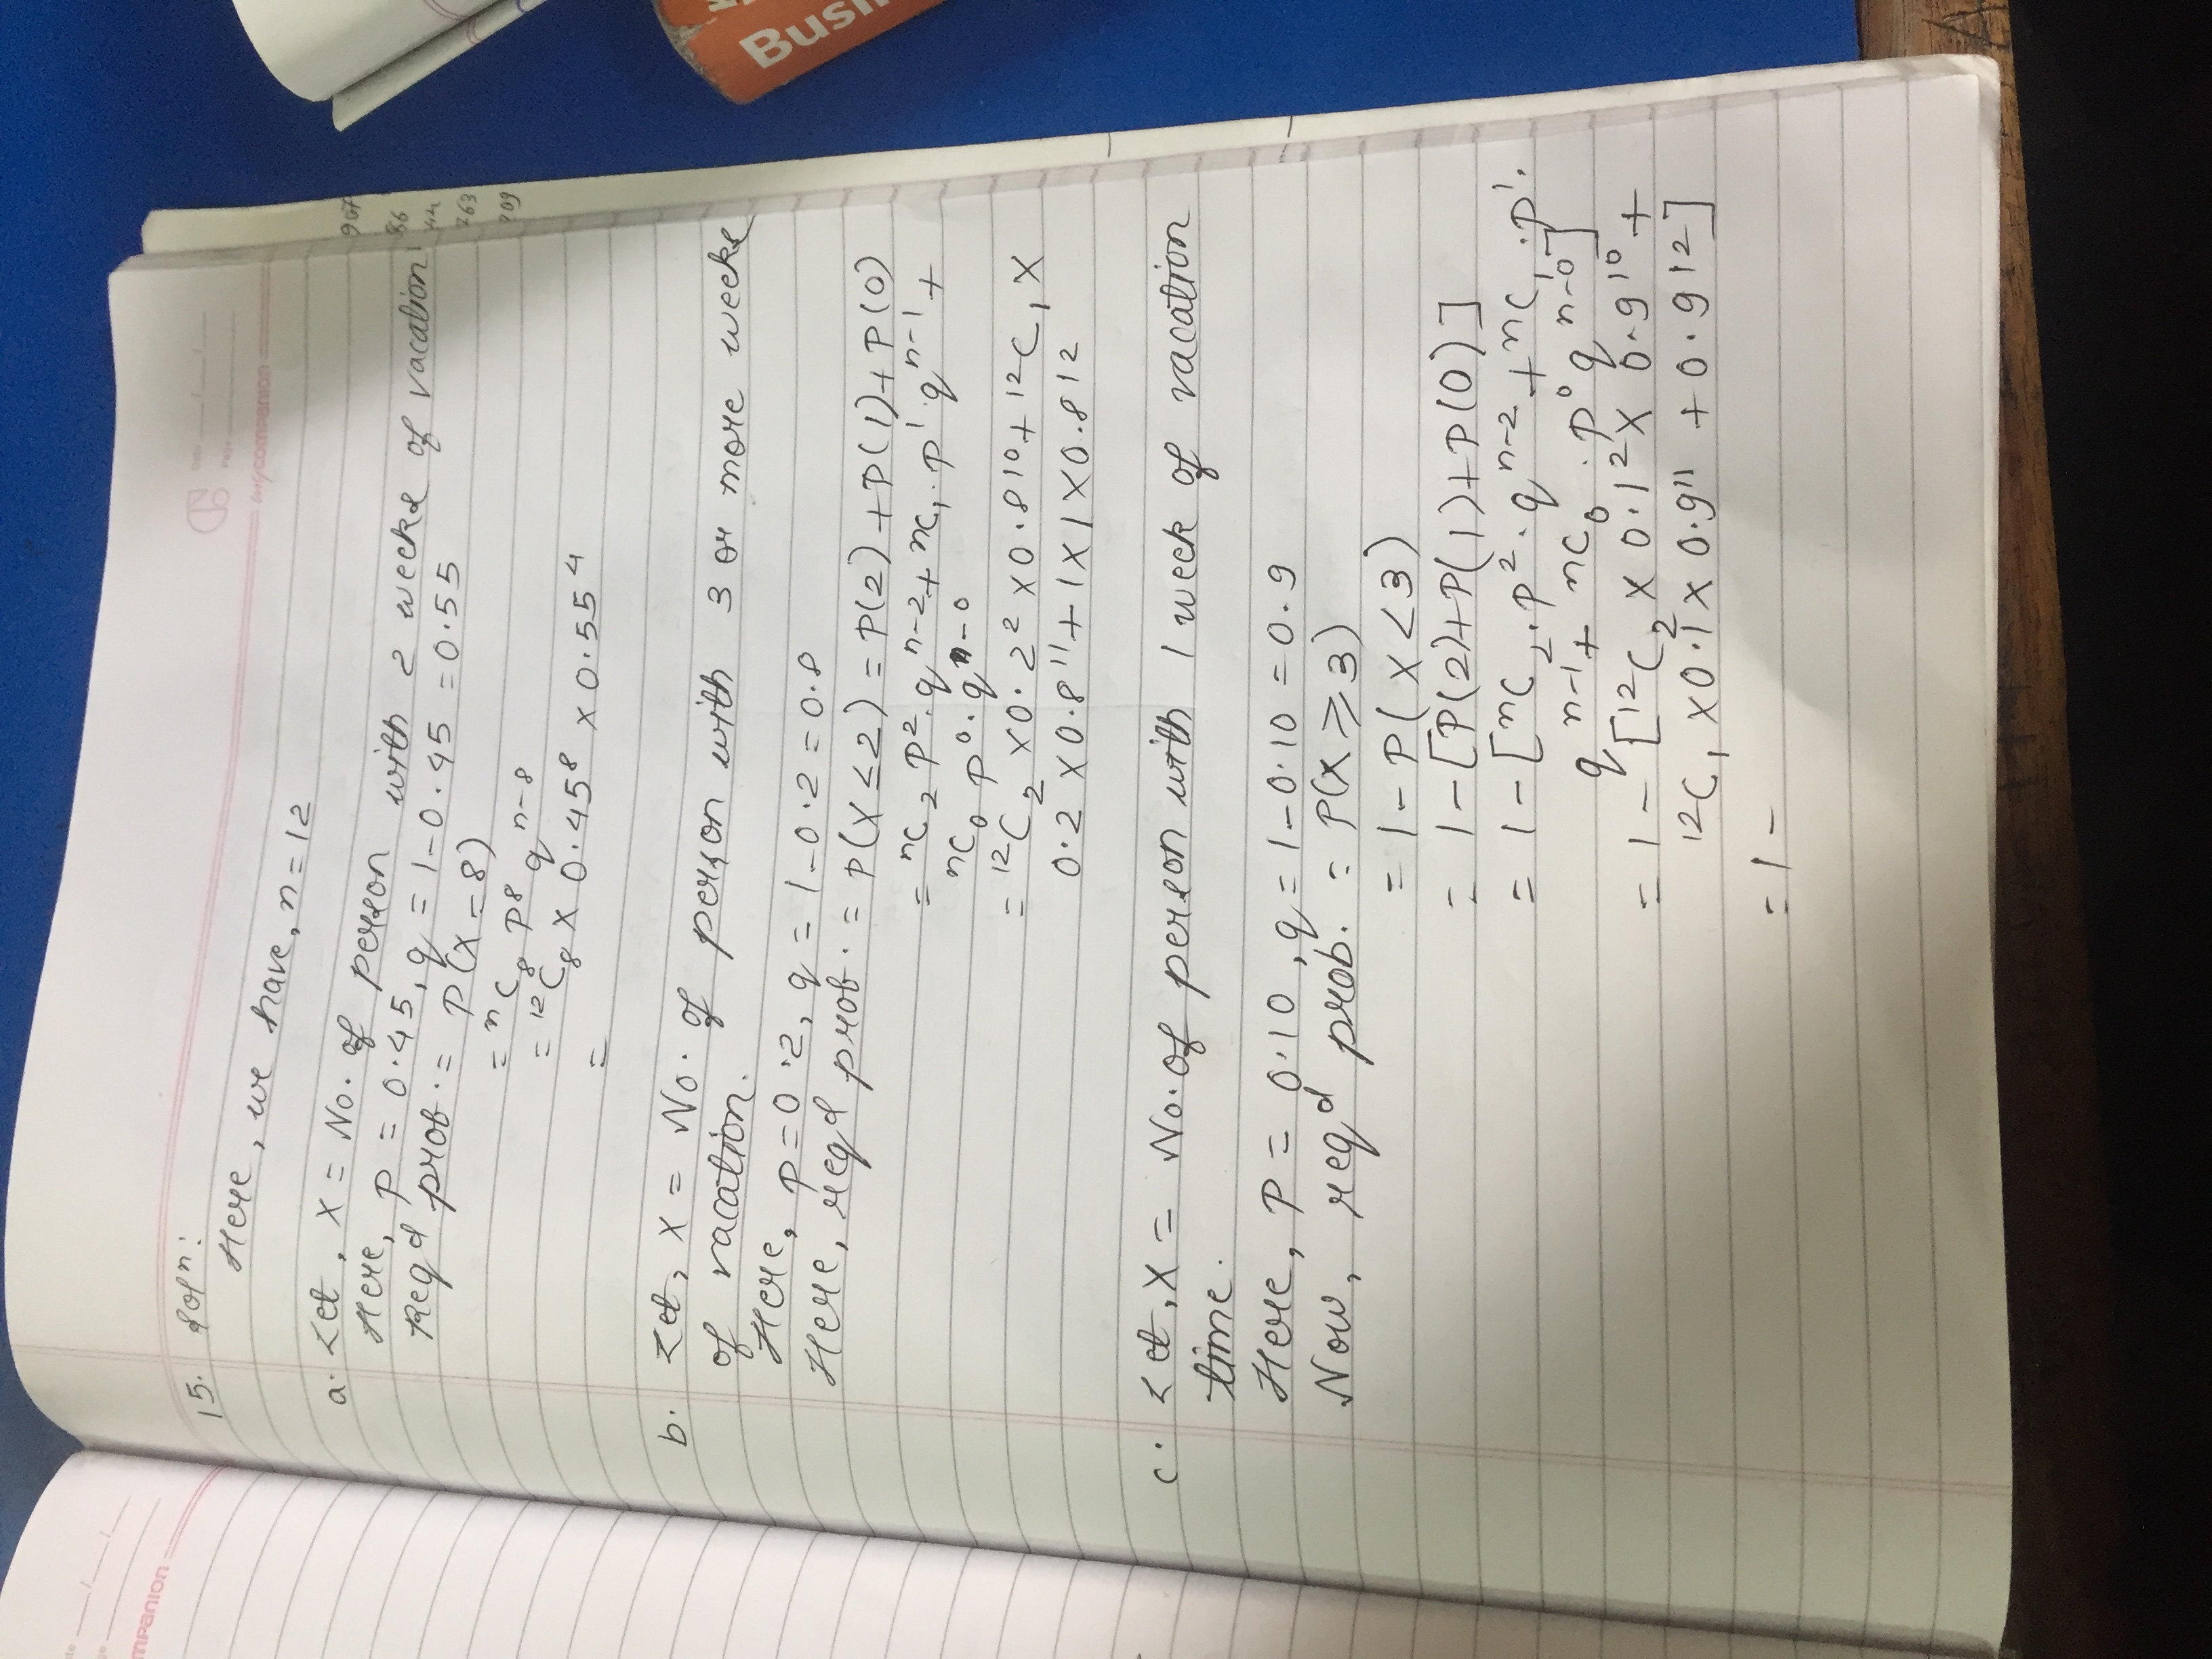 ate __/__/__
ge
mpanion
Date __/__/__
Page
mycompanion
15. Solⁿ:
Here, we have, n = 12
a. Let, X = No. of person with 2 weeks of vacation
Here, p = 0.45, q = 1-0.45 = 0.55
Reqᵈ prob. = P(X=8)
= ⁿC₈ p⁸ qⁿ⁻⁸
= ¹²C₈ × 0.45⁸ × 0.55⁴
=
b. Let, X = No. of person with 3 or more weeks
of vacation.
Here, p=0.2, q = 1-0.2 = 0.8
Here, reqᵈ prob. = P(X≤2) = P(2)+P(1)+P(0)
= ⁿC₂ p².qⁿ⁻²+ⁿC₁.p¹.qⁿ⁻¹+
ⁿC₀ p⁰.qⁿ⁻⁰
= ¹²C₂ ×0.2²×0.8¹⁰+¹²C₁×
0.2×0.8¹¹+1×1×0.8¹²
c. Let, X = No. of person with 1 week of vacation
time.
Here, P = 0.10, q = 1-0.10 = 0.9
Now, reqᵈ prob. = P(X≥3)
= 1-P(X<3)
= 1-[P(2)+P(1)+P(0)]
= 1-[ⁿC₂.p².qⁿ⁻²+ⁿC₁.p¹.
qⁿ⁻¹+ ⁿC₀.p⁰qⁿ⁻⁰]
= 1-[¹²C₂×0.1²×0.9¹⁰+
¹²C₁×0.1×0.9¹¹+0.9¹²]
= 1-
907
86
763
209
Busi